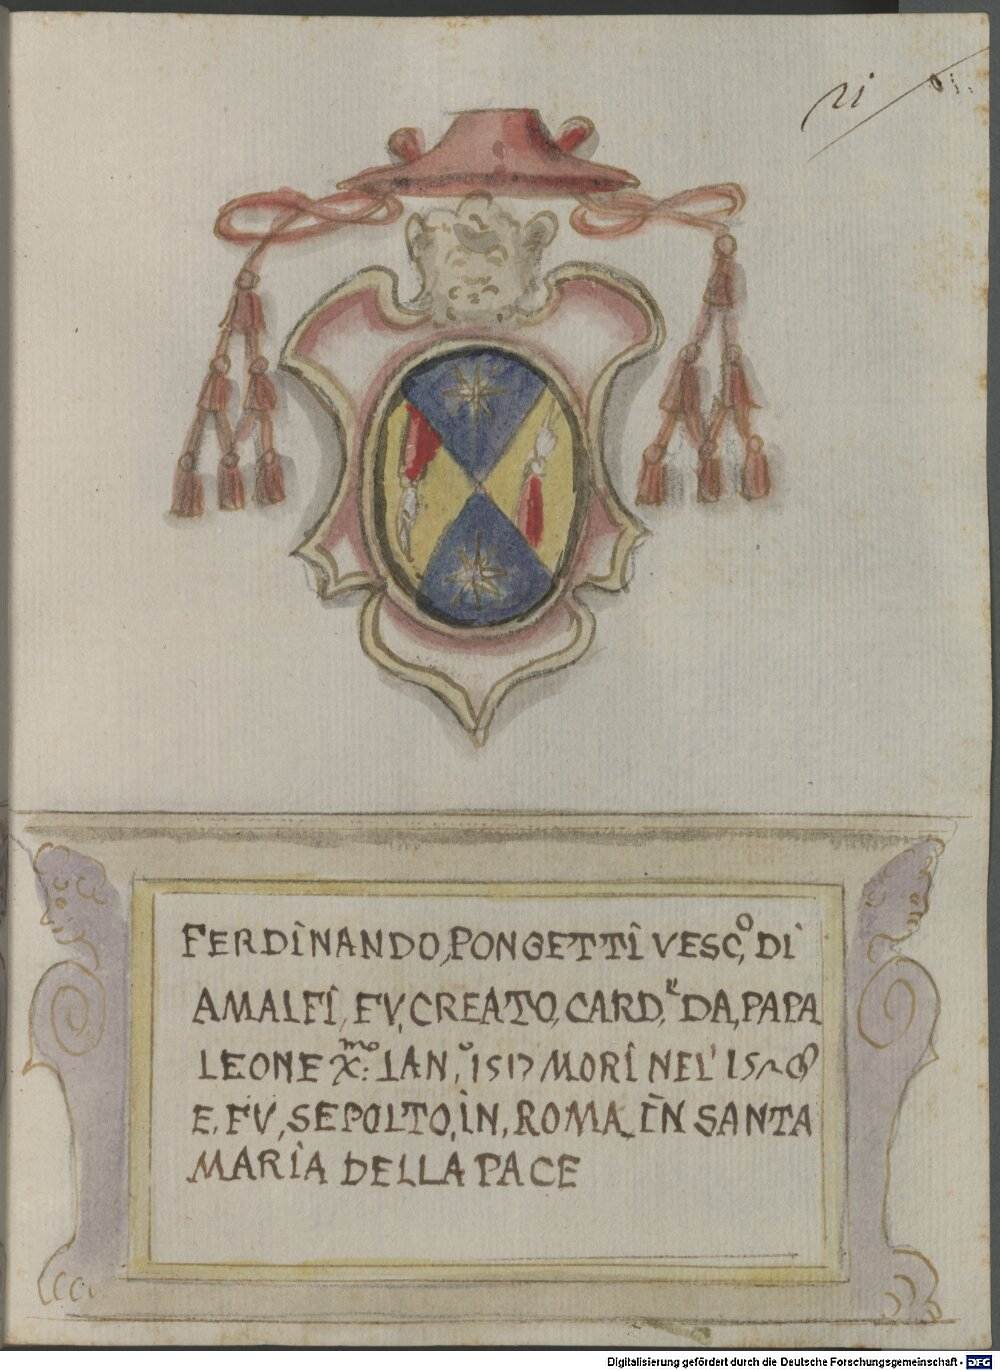 21
FERDINANDO, PONGETTI VESC,º DI
AMALFI, FV, CREATO, CARD,ᵉ DA, PAPA
LEONE X:ᵐᵒ LAN,º 1517 MORI NEL'
E, FV, SEPOLTO, IN, ROMA IN SANTA
MARIA DELLA PACE
Digitalisierung gefördert durch die Deutsche Forschungsgemeinschaft - DFG